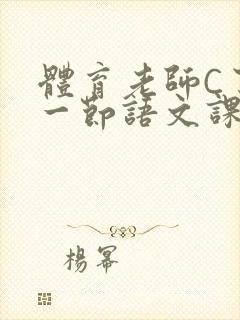 體育老師C
一節語文課
楊冪